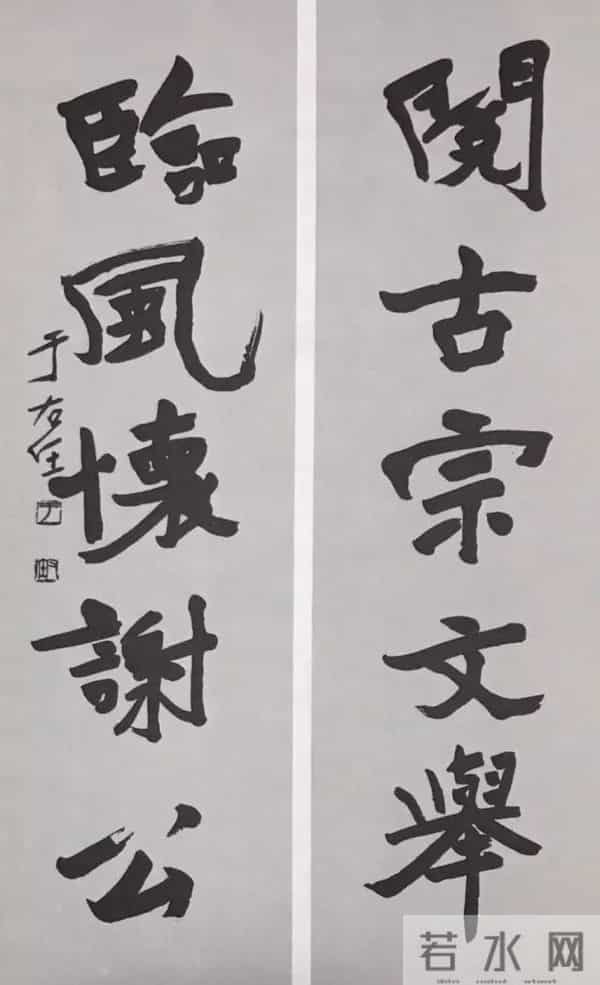 閱古宗文舉
臨風懷謝公
于右任
若水网